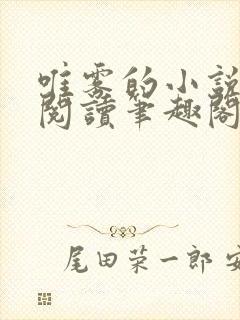 唯雾的小說
閱讀筆趣閣
尾田荣一郎 安